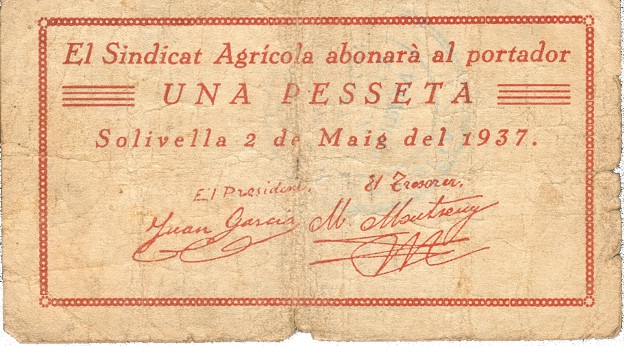 El Sindicat Agrícola abonarà al portador
UNA PESSETA
Solivella 2 de Maig del 1937.
El President. El Tresorer.
Juan García M. Montseny